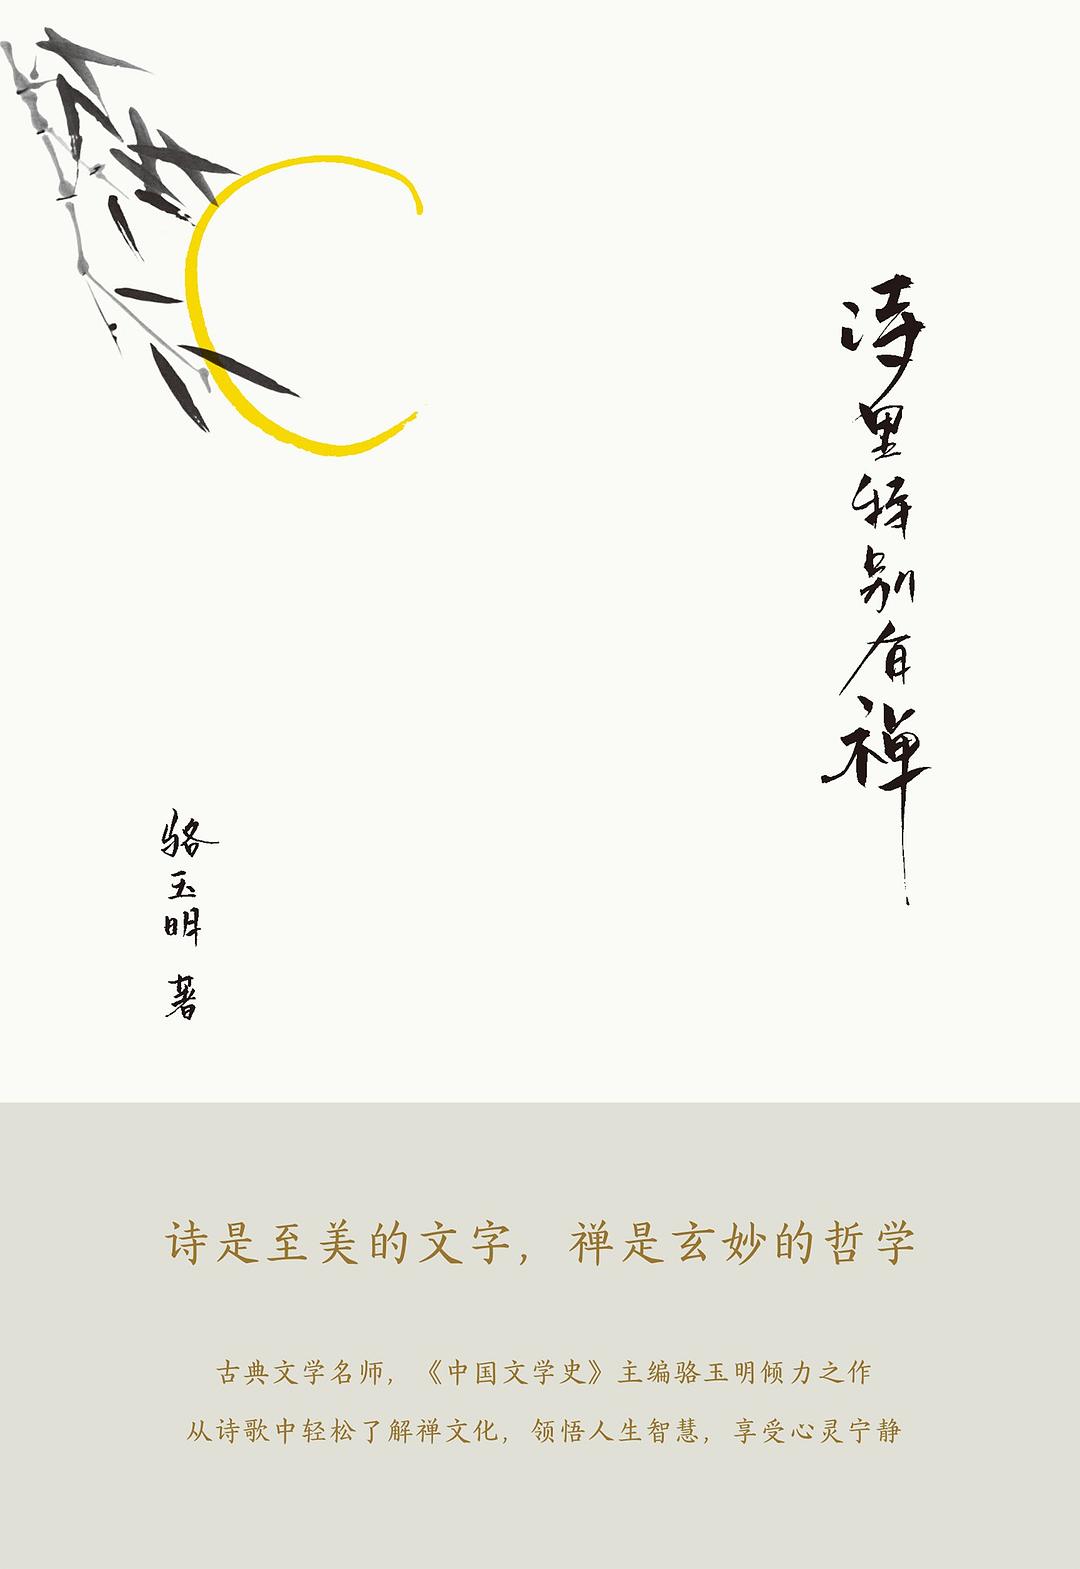 诗里特别有禅
骆玉明 著
诗是至美的文字，禅是玄妙的哲学
古典文学名师，《中国文学史》主编骆玉明倾力之作
从诗歌中轻松了解禅文化，领悟人生智慧，享受心灵宁静